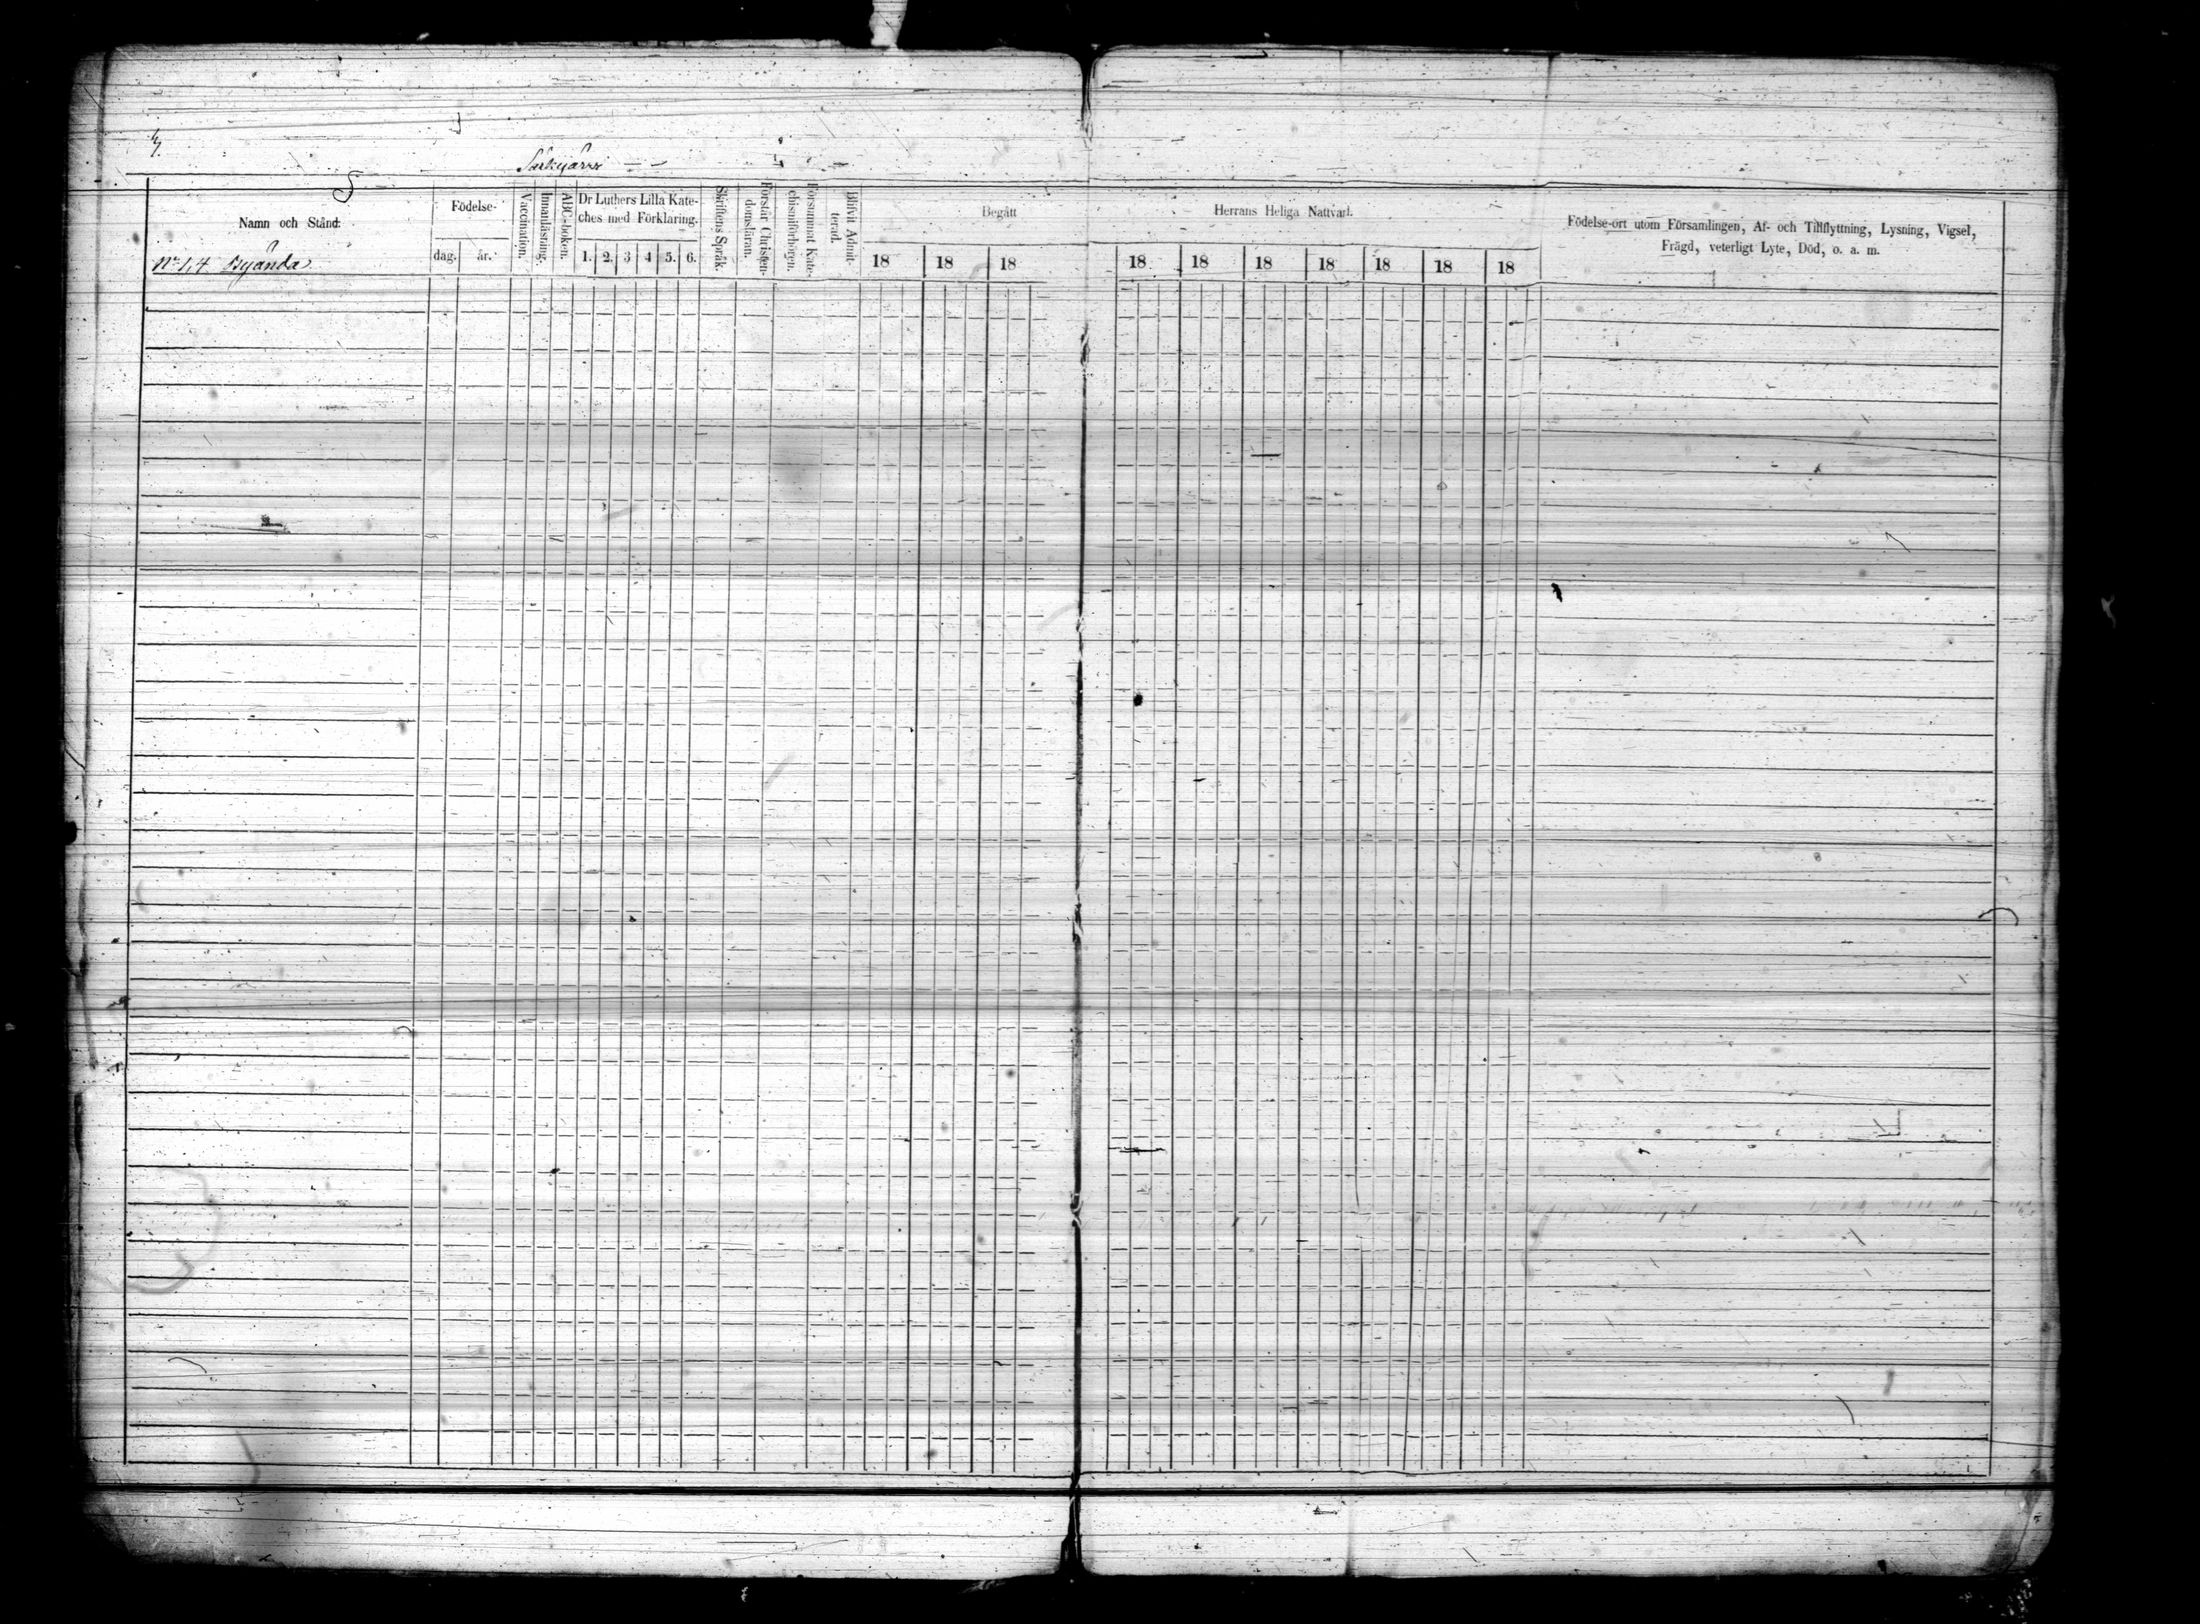 4.
Namn och Stånd:
Nr 1,4 Byända
Födelse-
dag.
år.
Vaccination.
Innanläsning.
ABC-boken.
Dr Luthers Lilla Kate-
ches med Förklaring.
1. 2. 3 4 5. 6.
Skriftens Språk.
Förstår Christen-
domsläran.
Försummat Kate-
chismiförhören.
Blifvit Admit-
terad.
Begått
18 18 18
Herrans Heliga Nattvard.
18 18 18 18 18 18 18
Födelse-ort utom Församlingen, Af- och Tillflyttning, Lysning, Vigsel,
Frägd, veterligt Lyte, Död, o. a. m.